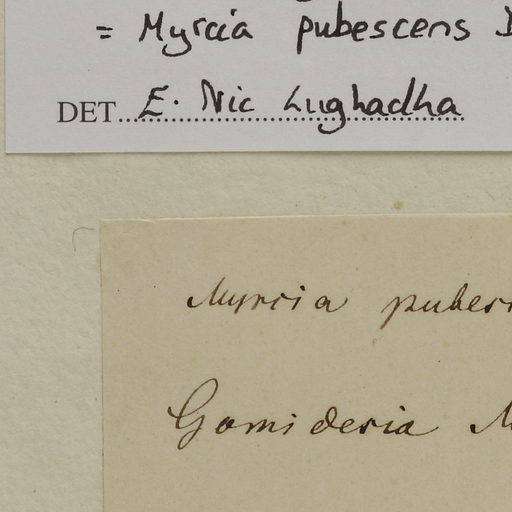 = Myrcia pubescens D
DET. E. Nic Lughadha
Myrcia pubes
Gomideria M